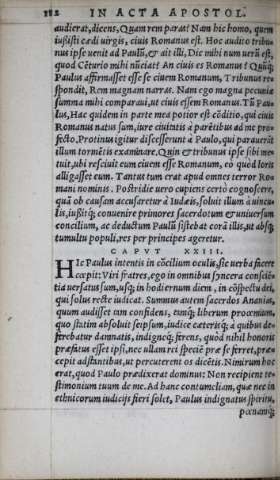 182 IN ACTA APOSTOL.
audierat, dicens, Quam rem paras? Nam hic homo, quem
iussisti cædi virgis, ciuis Romanus est. Hoc audito tribu-
nus ipse venit ad Paulū, & ait illi, Dic mihi num verū est,
quod Cēturio mihi nūciat? An ciuis es Romanus? Quūq;
Paulus affirmasset esse se ciuem Romanum, Tribunus re-
spondit, Rem magnam narras. Nam ego magna pecuniæ
summa mihi comparaui, ut ciuis essem Romanus. Tū Pau
lus, Hac quidem in parte mea potior est cōditio, qui ciuis
Romanus natus sum, iure ciuitatis à parētibus ad me pro-
fecto, Protinus igitur discesserunt à Paulo, qui parauerāt
illum tormētis examinare. Quin & tribunus ipse sibi me-
tuit, ubi resciuit eum ciuem esse Romanum, eo quòd loris
alligasset eum. Tantus tum erat apud omnes terror Ro-
mani nominis. Postridie uero cupiens certò cognoscere,
quā ob causam accusaretur à Iudæis, soluit illum à uincu-
lis, iussitq; conuenire primores sacerdotum & uniuersum
concilium, ac deductum Paulū sistebat corā illis, ut absq;
tumultu populi, res per principes ageretur.
CAPVT XXIII.
HIc Paulus intentis in cōcilium oculis, sic uerba facere
cœpit: Viri fratres, ego in omnibus syncera consciē-
tia uersatus sum, usq; in hodiernum diem, in cōspectu dei,
qui solus recte iudicat. Summus autem sacerdos Ananias,
quum audisset tam confidens, eamq; liberum proœmium,
quo statim absoluit seipsum, iudice cæterisq; à quibus de-
ferebatur damnatis, indigneq; ferens, quòd nihil honoris
præfatus esset ipsi, nec ullam rei speciē præ se ferret, præ-
cepit adstantibus, ut percuterent os dicētis. Nimirum hoc
erat, quod Paulo prædixerat dominus: Non recipient te-
stimonium tuum de me. Ad hanc contumeliam, quæ nec in
ethnicorum iudicijs fieri solet, Paulus indignatus spiritu,
pœnamq;